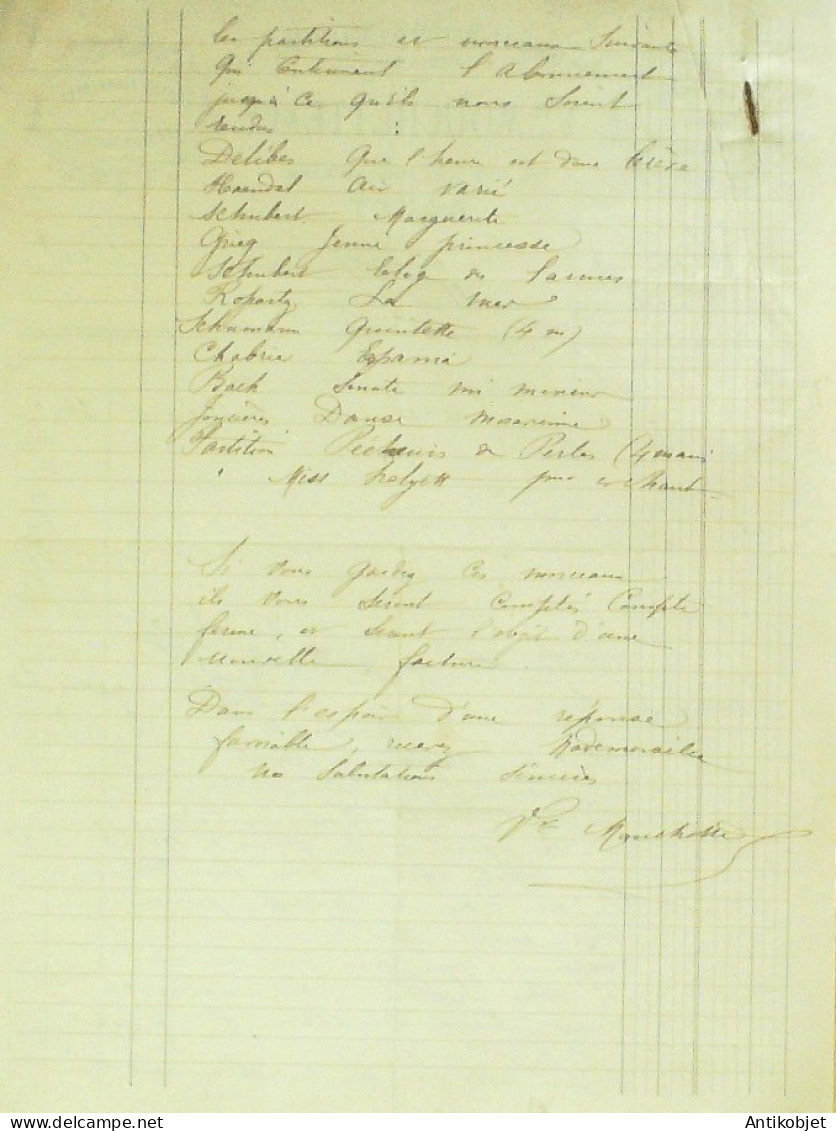 les partitions et morceaux suivants
qui entrainent l'abonnement
jusqu'à ce qu'ils nous soient
rendus :
Delibes Que l'heure est donc brève
Haendel Air varié
Schubert Marguerite
Grieg Jeune princesse
Schubert Eloge des larmes
Ropartz La mer
Schumann Quintette (4 m)
Chabrier España
Bach Sonate mi mineur
Joncières Danse
Partition Pêcheurs de Perles (4 mains
" Miss Helyett et chant
Si vous gardez ces morceaux
ils vous seront comptés compte
ferme, et seront l'objet d'une
nouvelle facture
Dans l'espoir d'une réponse
favorable, recevez Mademoiselle
nos salutations sincères
delcampe.net
Antikobjet